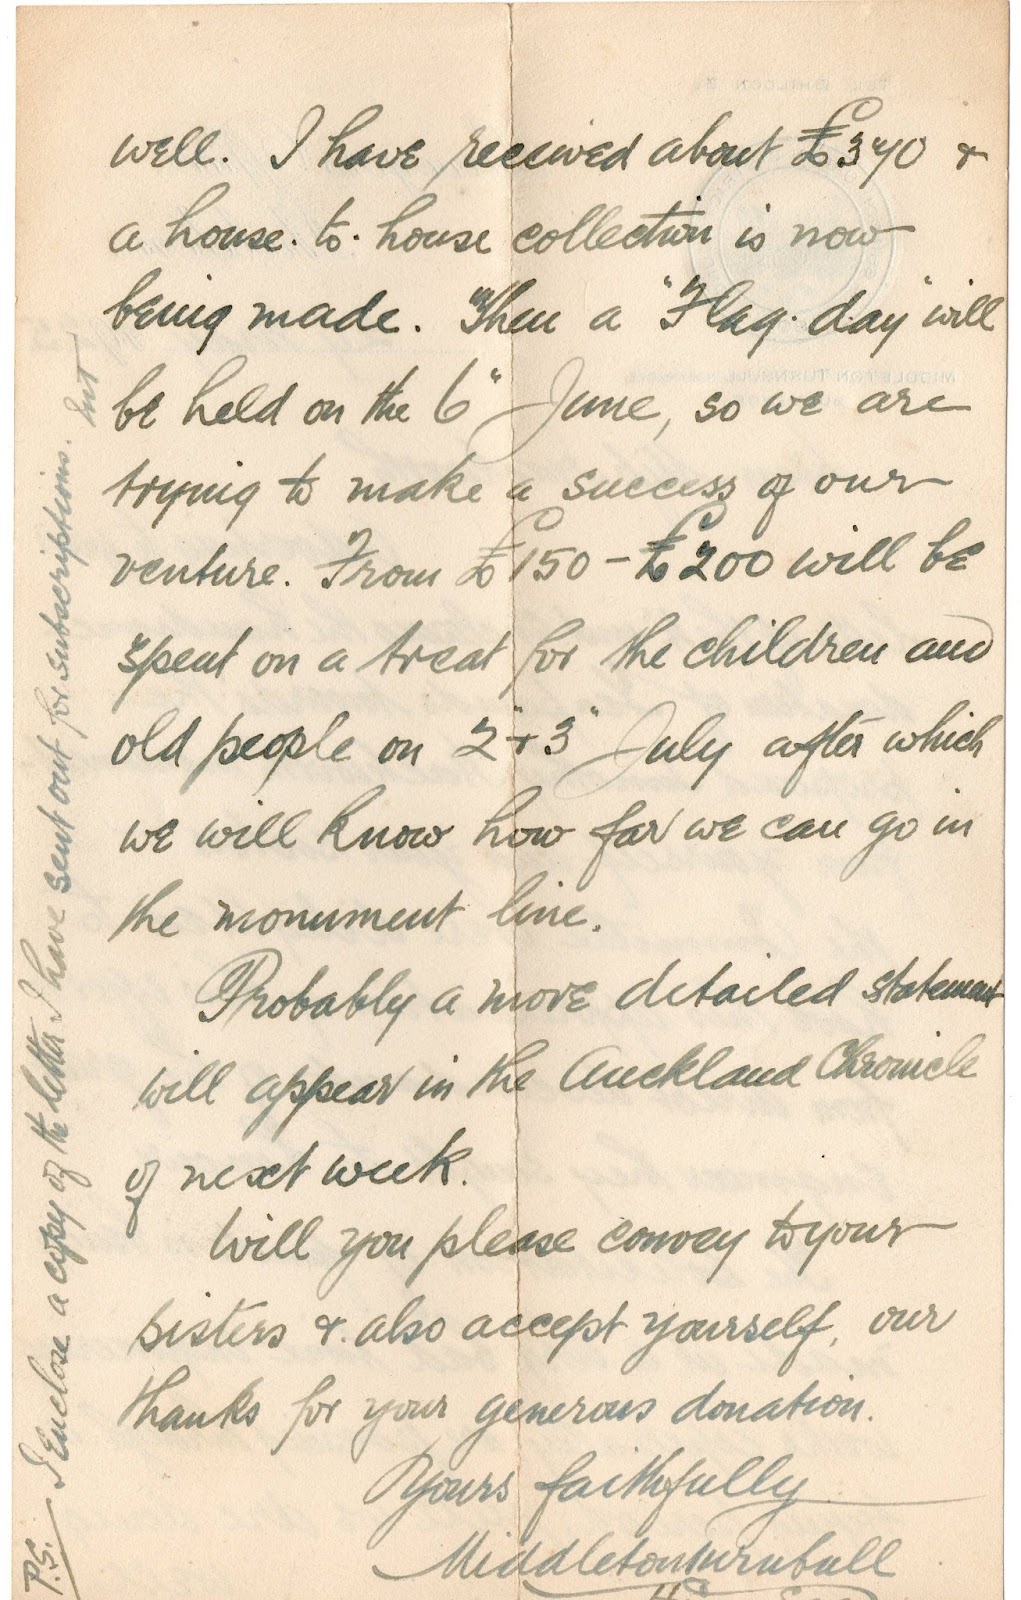 well. I have received about £370 &
a house. to. house collection is now
being made. Then a "Flag. day" will
be held on the 6" June, so we are
trying to make a success of our
venture. From £150 - £200 will be
spent on a treat for the children and
old people on 2" + 3" July after which
we will know how far we can go in
the monument line.
Probably a more detailed statement
will appear in the Auckland Chronicle
of next week.
Will you please convey to your
sisters & also accept yourself, our
thanks for your generous donation.
Yours faithfully
Middleton Turnbull
P.S. I Enclose a copy of the letter I have sent out for subscriptions.